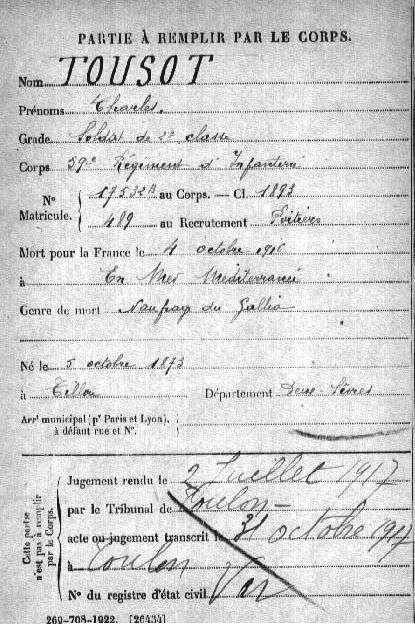 PARTIE À REMPLIR PAR LE CORPS.
Nom TOUSOT
Prénoms Charles.
Grade Soldat de 2e classe
Corps 59e Régiment d'Infanterie
No Matricule. { 17532B au Corps. — Cl. 1893
489 au Recrutement Poitiers
Mort pour la France le 4 octobre 1916
à En Mer Méditerranée
Genre de mort Naufrage du Gallia
Né le 5 octobre 1873
à Tillou Département Deux Sèvres
Arrt municipal (pr Paris et Lyon),
à défaut rue et No.
Cette partie
n'est pas à remplir
par le Corps.
Jugement rendu le 2 Juillet 1917
par le Tribunal de Toulon
acte ou jugement transcrit le 31 octobre 1917
à Toulon Var
No du registre d'état civil
269-708-1922. [26434]